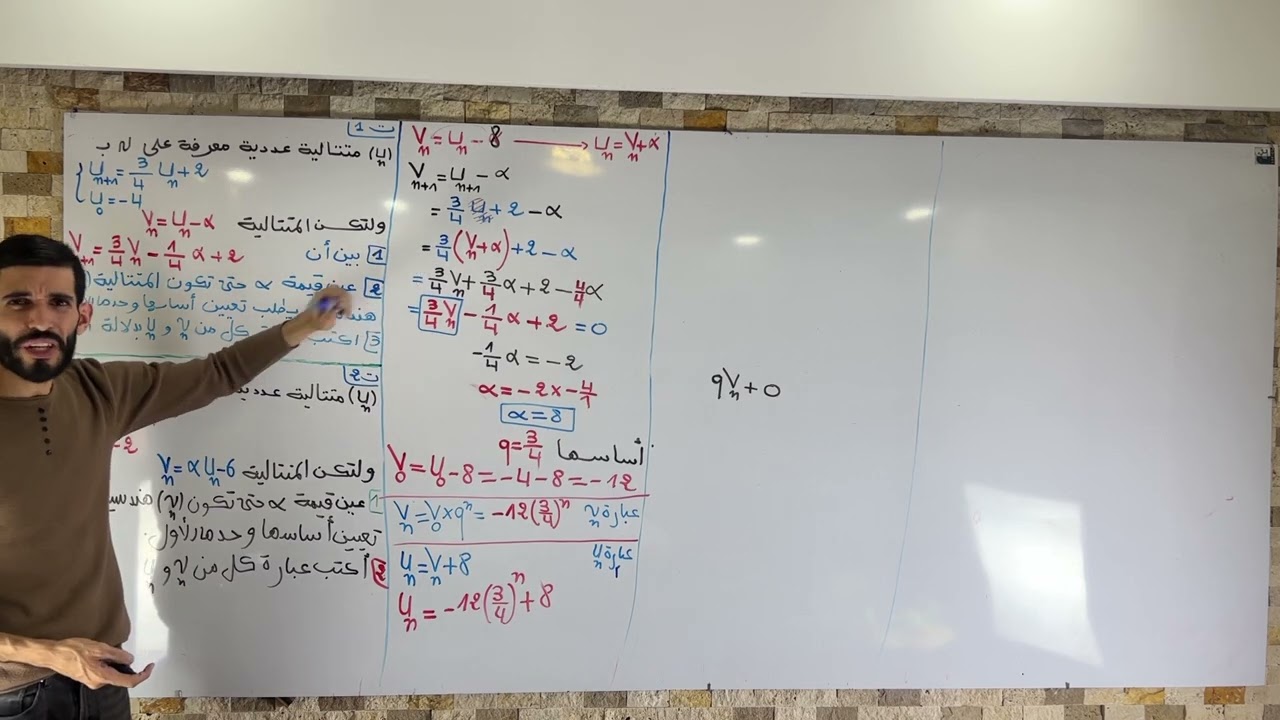 ت1
(Uₙ) متتالية عددية معرفة على ℕ ب
Uₙ₊₁ = 3/4 Uₙ + 2
U₀ = -4
ولتكن المتتالية Vₙ = Uₙ - α
1 بين أن Vₙ₊₁ = 3/4 Vₙ - 1/4 α + 2
2 عين قيمة α حتى تكون المتتالية
يطلب تعيين أساسها وحدها
3 اكتب كل من Vₙ و Uₙ بدلالة
ت2
(Uₙ) متتالية عددية
-2
ولتكن المتتالية Vₙ = αUₙ - 6
1 عين قيمة α حتى تكون (Vₙ) هندسية
تعيين أساسها وحدها الأول.
2 أكتب عبارة كل من Vₙ و Uₙ
Vₙ = Uₙ - 8 → Uₙ = Vₙ + α
Vₙ₊₁ = Uₙ₊₁ - α
= 3/4 Uₙ + 2 - α
= 3/4 (Vₙ + α) + 2 - α
= 3/4 Vₙ + 3/4 α + 2 - 4/4 α
= 3/4 Vₙ - 1/4 α + 2 = 0
-1/4 α = -2
α = -2 × -4/1
α = 8
أساسها q = 3/4
V₀ = U₀ - 8 = -4 - 8 = -12
عبارة Vₙ Vₙ = V₀ × qⁿ = -12(3/4)ⁿ
عبارة Uₙ
Uₙ = Vₙ + 8
Uₙ = -12(3/4)ⁿ + 8
qVₙ + 0